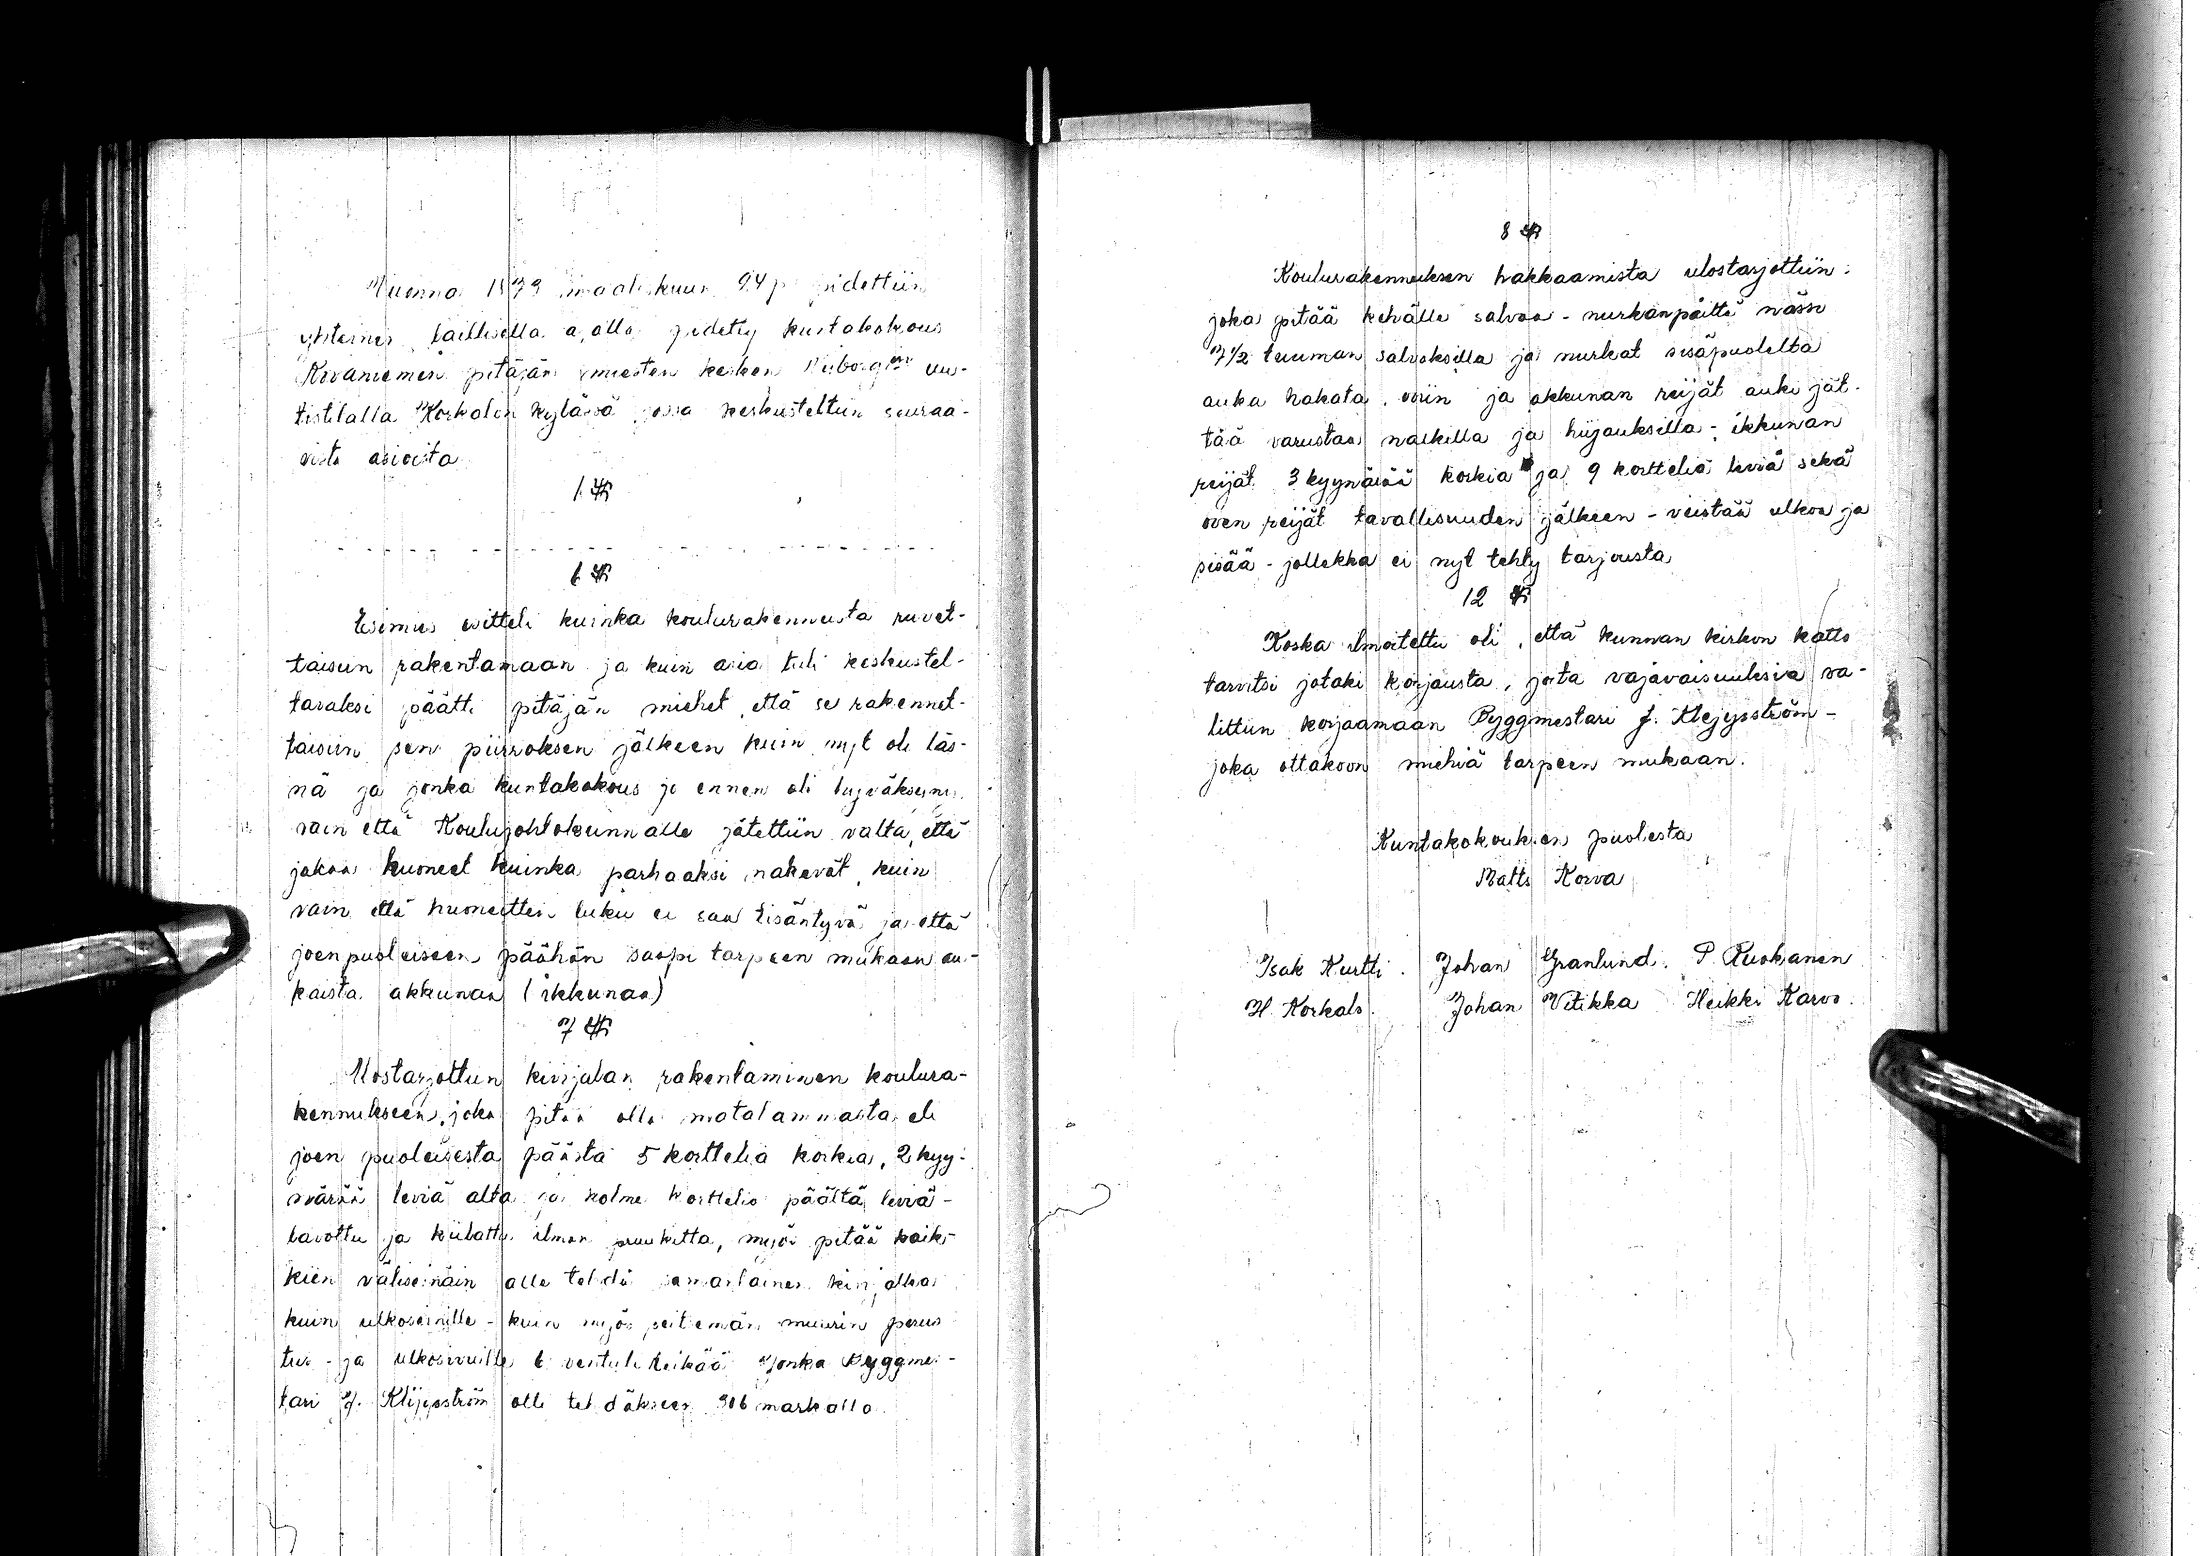 Vuonna 1879 maaliskuun 24 p pidettiin
yhteinen laillisella ajalla pidetty kuntakokous
Rovaniemen pitäjän miesten kesken Viiborgin uu-
tistilalla Korkalon kylässä jossa keskusteltiin seuraa-
vista asioista
1 §
- - - - - - - - - - - - - - - - - - - - - - - - -
6 §
Esimies esitteli kuinka koulurakennusta ruvet-
taisiin rakentamaan ja kuin asia tuli keskustel-
tavaksi päätti pitäjän miehet, että se rakennet-
taisiin sen piirroksen jälkeen kuin nyt oli läs-
nä ja jonka kuntakokous jo ennen oli hyväksynn.
vain että Koulujohtokunnalle jätettiin valta, että
jakaa huoneet kuinka parhaaksi näkevät, kuin
vain että huoneitten luku ei saa lisäntyvä ja että
joenpuoleiseen päähän saapi tarpeen mukaan au-
kaista akkunan (ikkunan)
7 §
Ulostarjottiin kivijalan rakentaminen koulura-
kennukseen, joka pitää olla matalammasta eli
joen puoleisesta päästä 5 korttelia korkia, 2 kyy-
närää leviä alta ja kolme korttelia päältä leviä -
ladottu ja kiilattu ilman pruukitta, myös pitää kaik-
kien väliseinäin alle tehdä samallainen kivijalka
kuin ulkoseinille - kuin myös peitemän muurin perus
tus - ja ulkosivuille 6 ventuli reikää Jonka Byggme-
tari J. Klijysström otti tehdäkseen 306 markalla
8 §
Koulurakennuksen hakkaamista ulostarjottiin:
joka pitää kehälle salvaa - nurkanpäittä
7 1/2 tuuman salvoksilla ja nurkat sisäpuolelta
auka hakata, ovin ja akkunan reijät auki jät-
tää varustaa nalkilla ja hiijauksilla - ikkunan
reijät 3 kyynärää korkia ja 9 korttelia leviä sekä
oven reijät tavallisuuden jälkeen - veistää ulkoa ja
sisää - jollekka ei nyt tehty tarjousta
12 §
Koska ilmoitettu oli, että kunnan kirkon katto
tarvitsi jotaki korjausta, joita vajavaisuuksia va-
littiin korjaamaan Byggmestari J. Klejysström -
joka ottakoon miehiä tarpeen mukaan.
Kuntakokouksen puolesta
Matts Korva
Isak Kurtti. Johan Granlund. P. Ruokanen
H. Korkalo. Johan Vitikka Heikki Karvo.